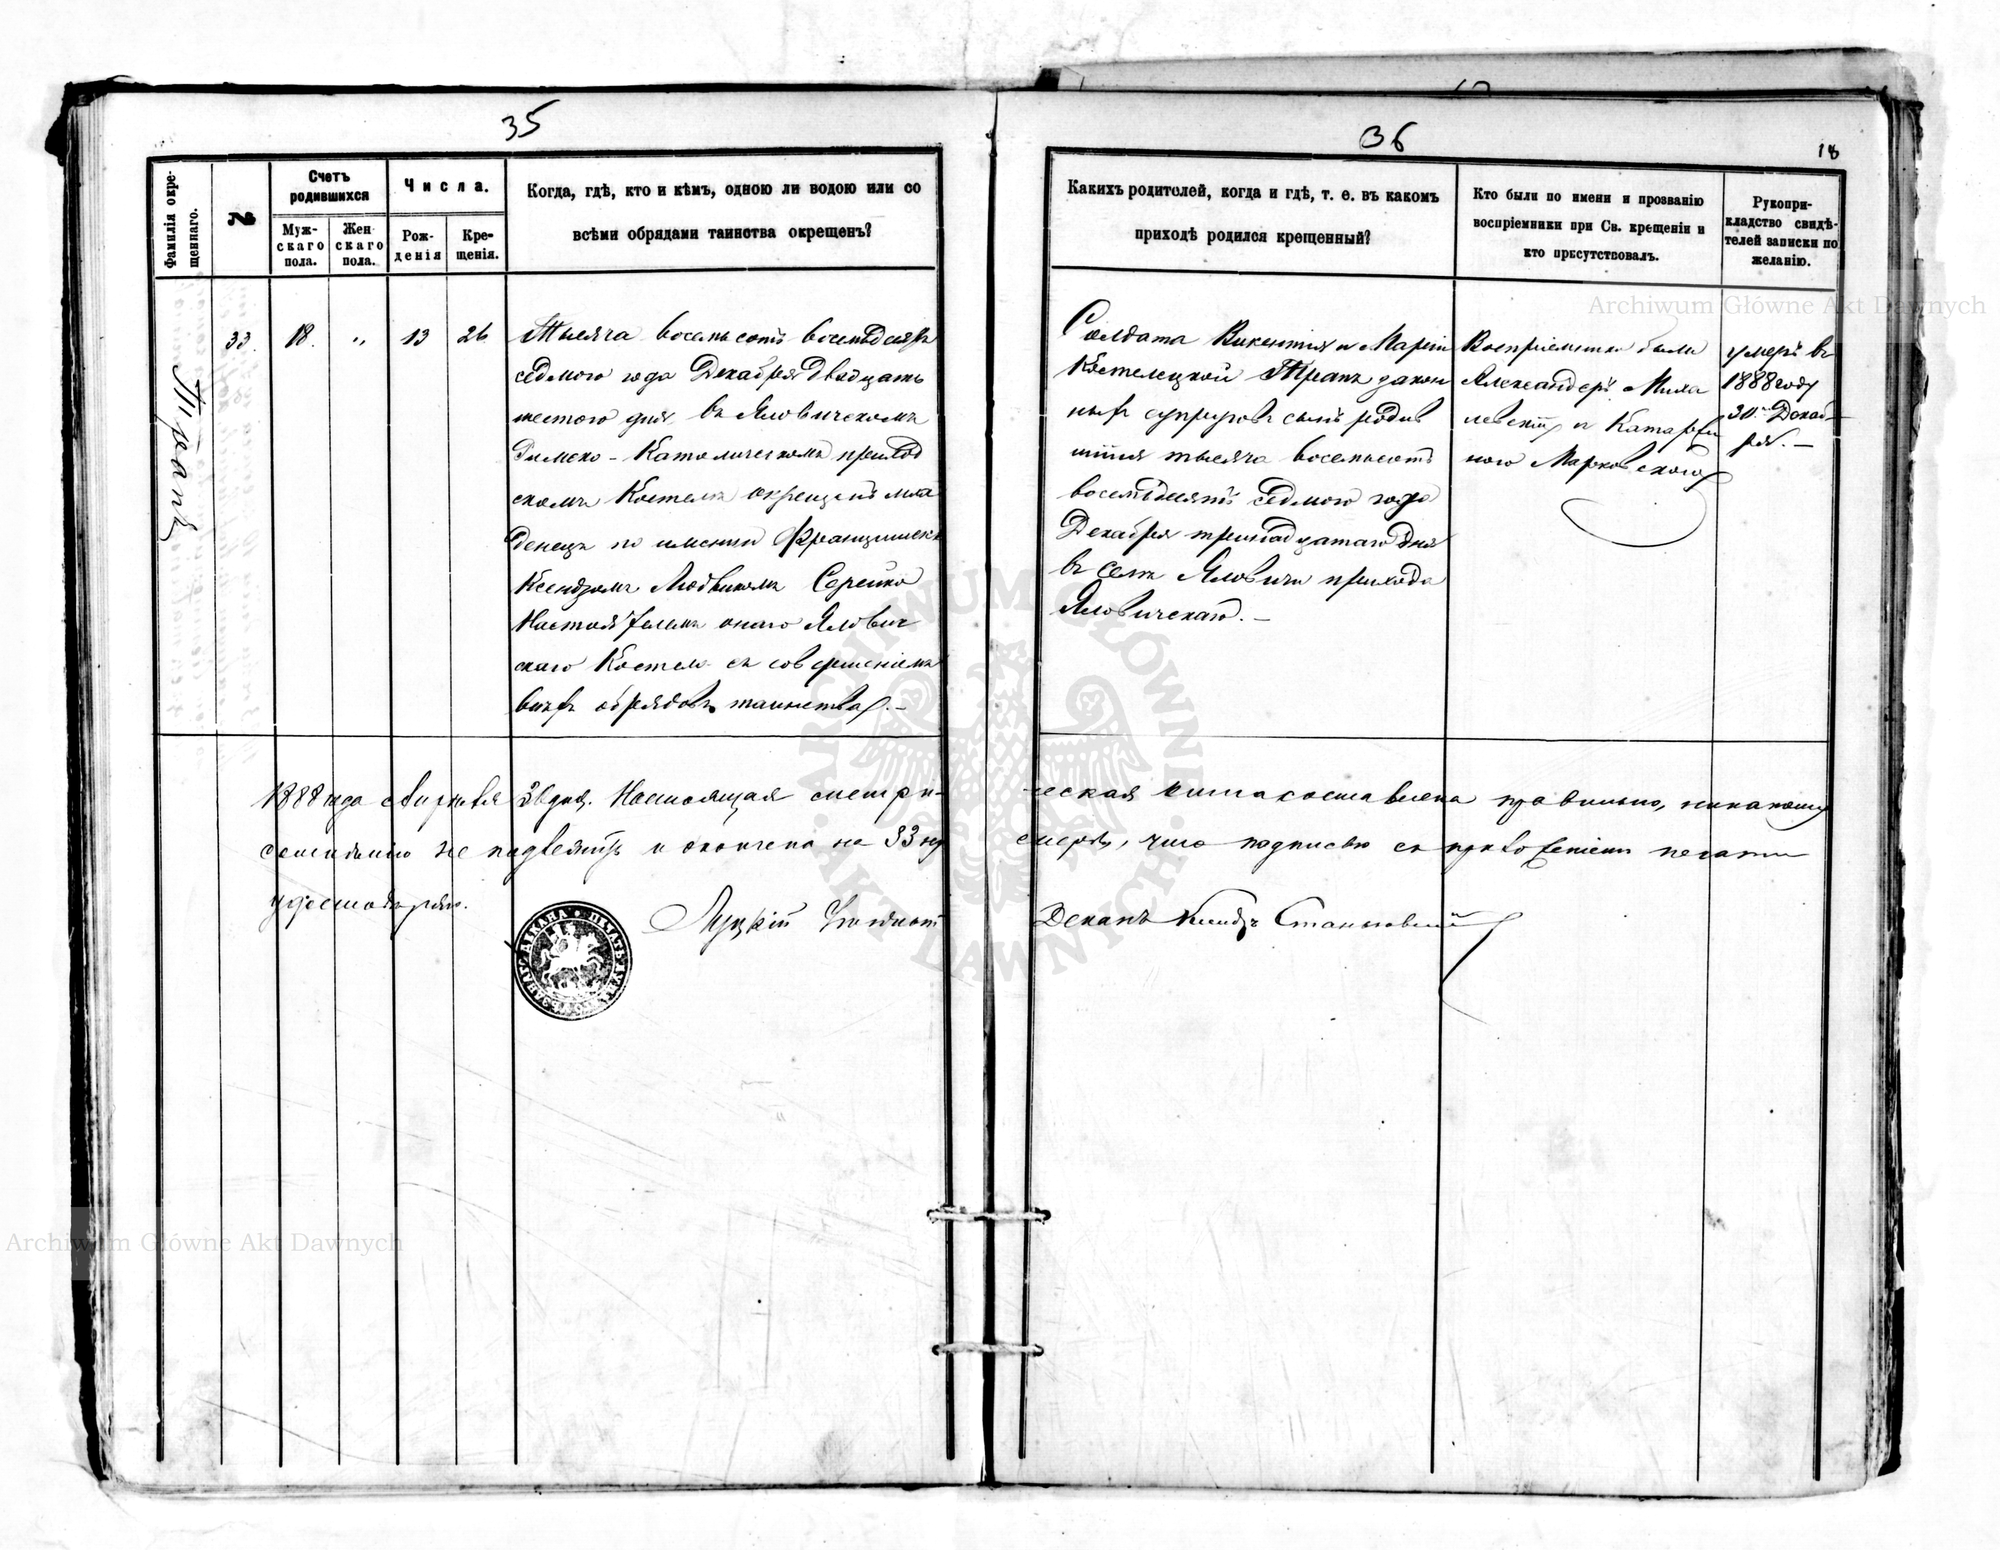 35
Фамилія окре-
щеннаго.
№
Счетъ
родившихся
Муж-
скаго
пола.
Жен
скаго
пола.
Числа.
Рож-
денія
Кре-
щенія.
Когда, гдѣ, кто и кѣмъ, одною ли водою или со
всѣми обрядами таинства окрещенъ?
Трапъ
33.
18.
„
13
26
Тысяча восемьсотъ восемьдесятъ
седмого года Декабря двадцать
шестого дня въ Яловичскомъ
Римско-Католическомъ приход
скомъ Костелѣ окрещенъ мла
денецъ по имени Францишекъ
Ксендзомъ Людвикомъ Серейко
Настоятелемъ онаго Ялович
скаго Костела съ совершеніемъ
всѣхъ обрядовъ таинства.-
36
18
Какихъ родителей, когда и гдѣ, т. е. въ какомъ
приходѣ родился крещенный?
Кто были по имени и прозванію
воспріемники при Св. крещеніи и
кто присутствовалъ.
Рукопри-
кладство свидѣ-
телей записки по
желанію.
Солдата Викентія и Маріи
Костелецкой Трапъ закон
ныхъ супруговъ сынъ родив
шійся тысяча восемьсотъ
восемьдесятъ седмого года
Декабря тринадцатаго дня
въ селѣ Яловичи прихода
Яловичскаго.-
Воспріемники были
Александеръ Миха
левскій и Катаржи
Марковского
умеръ въ
1888 году
30 Декаб-
ря.-
1888 года 26 дня. Настоящая метри-
ческая книга составлена правильно, никакому
сомнѣнію не подлежитъ и окончена на 33 ну
мерѣ, что подписью съ приложеніемъ печати
удостовѣряю.
Луцкій Деканъ Ксендзъ
Archiwum Główne Akt Dawnych
Archiwum Główne Akt Dawnych
ARCHIWUM GŁÓWNE
AKT DAWNYCH